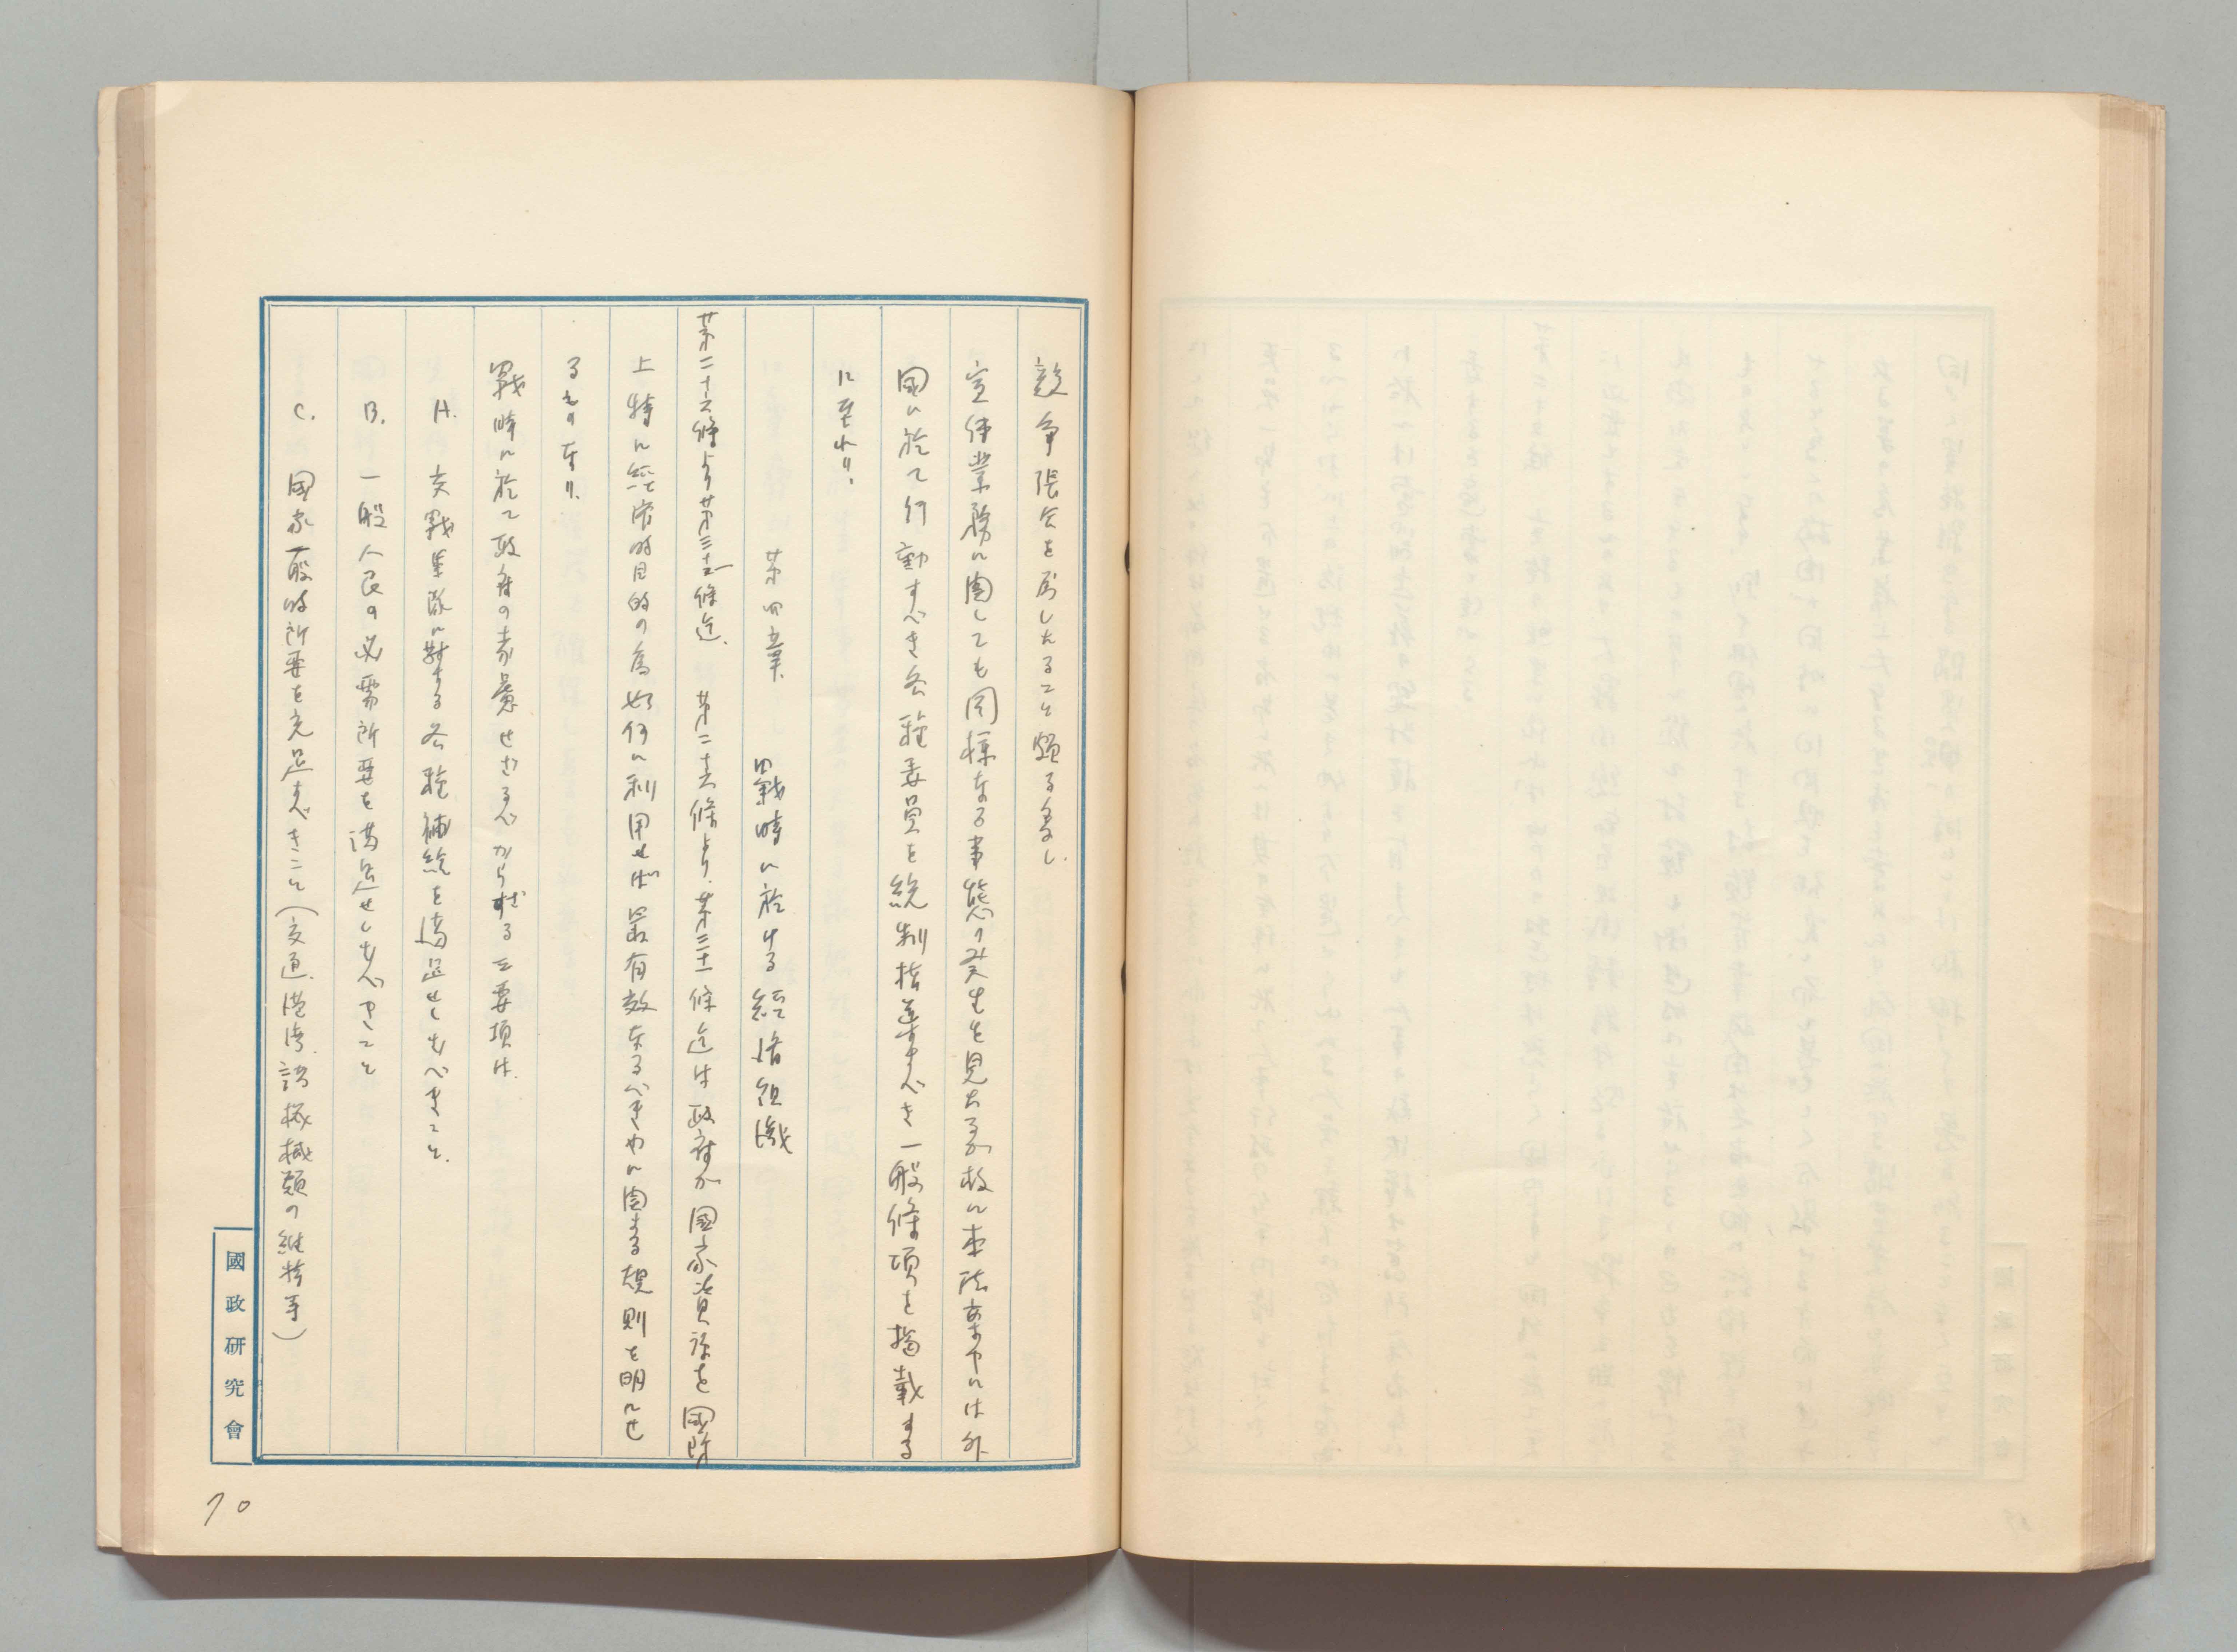 競争張合を為したること頗る多し、
宣伝業務に関しても同様なる事態の発生を見たる故に本法案中には外
国に於て行動すべき各種委員を統制指導すべき一般條項を掲載する
に至れり、
第四章、戦時に於ける経済組織
第二十六條より第三十一條迄、第二十六條より第三十一條迄は政府が國家資源を國防
上特に経済的目的の為如何に利用せば最有效なるべきやに関する規則を明にせ
るものなり、
戰時に於て政府の考慮せざるべからざる主要項は、
A. 交戰軍隊に対する各種補給を満足せしむべきこと、
B. 一般人民の必需所要を満足せしむべきこと
C. 國家一般的所要を充足すべきこと(交通、港湾、諸機械類の維持等)
國政研究會
70